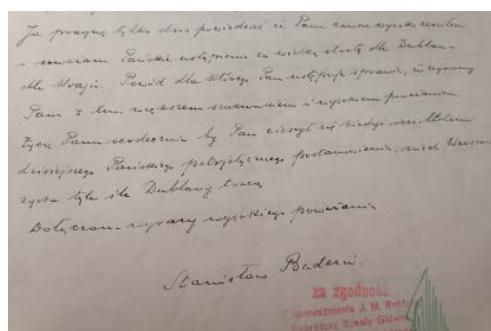 Ja pragnę tylko dziś powiedzieć iż Pana zawsze wysoko ceniłem
i uważam Pańskie ustąpienie za wielką stratę dla Dublan i
dla kraju. Powód dla którego Pan ustępuje sprawia, iż żegnamy
Pana z tem większem szacunkiem i wysokiem poważaniem
Życzę Panu serdecznie by Pan cieszył się kiedyś rezultatem
dzisiejszego Pańskiego patrjotycznego postanowienia, niech Warszawa
zyska tyle ile Dublany tracą
Dołączam wyrazy wysokiego poważania
Stanisław Badeni.
za zgodność
Z upoważnienia J. M. Rektora
Sekretarz Szkoły Głównej